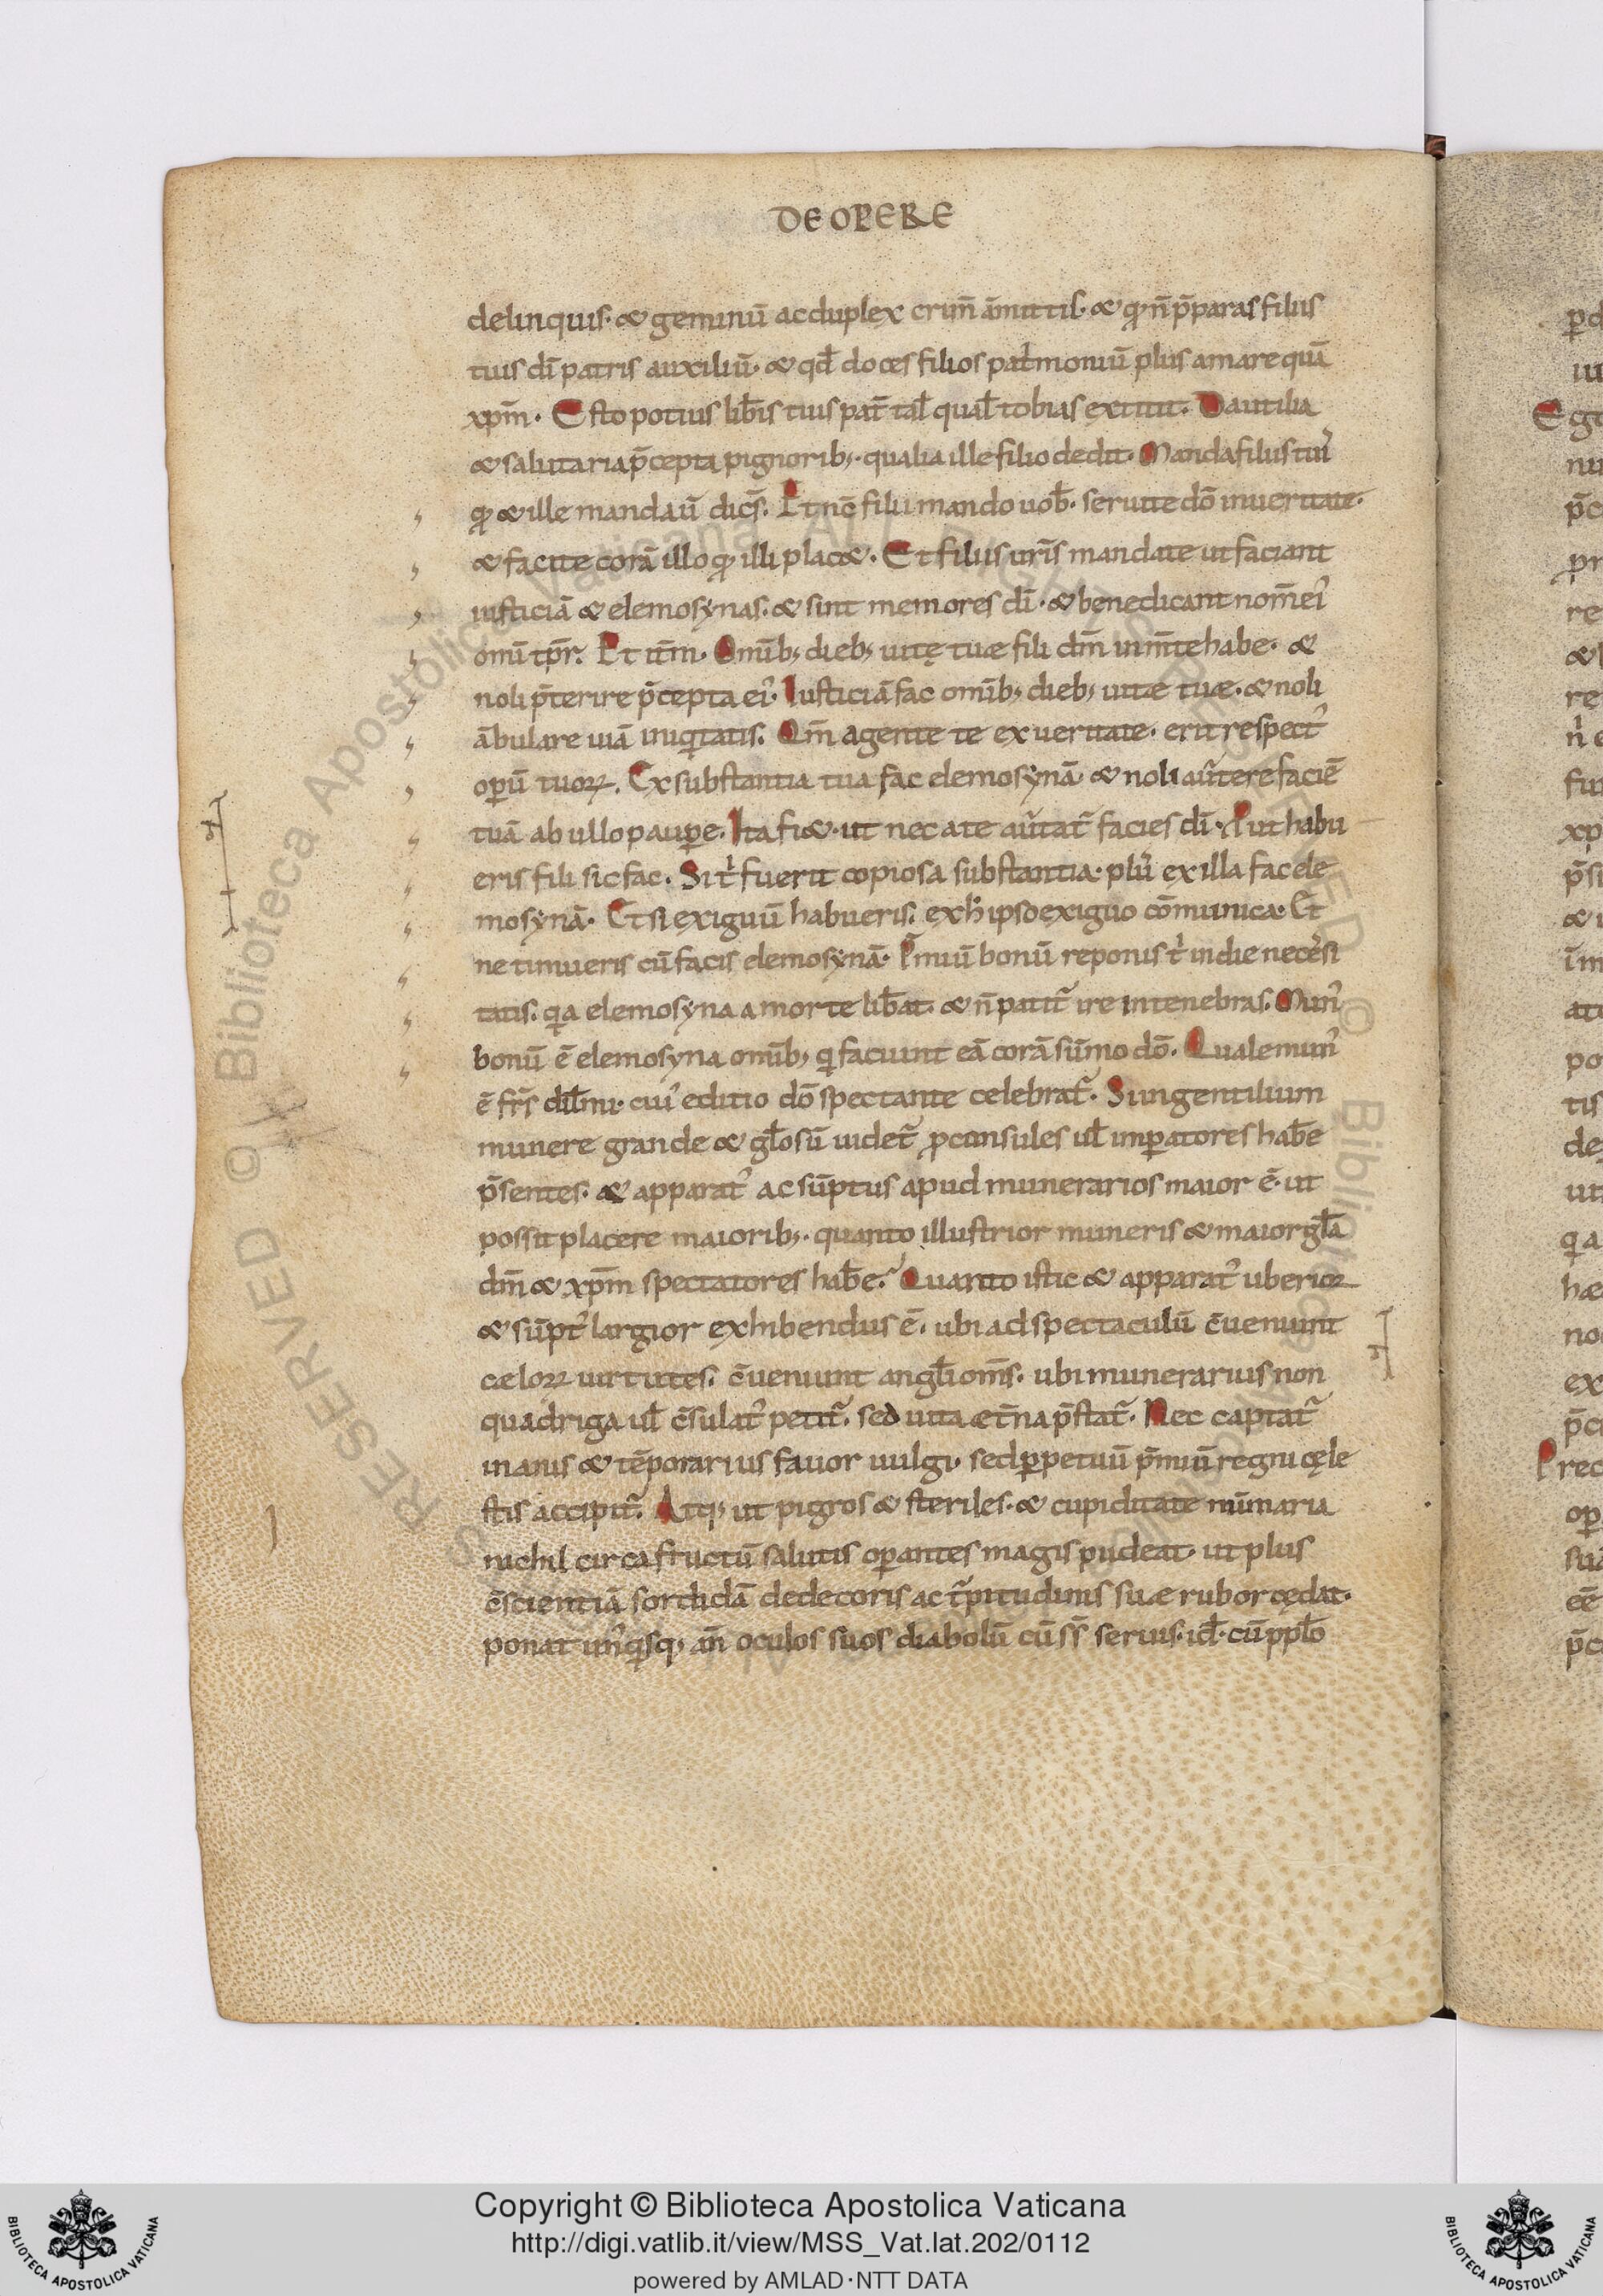 DE OPERE
delinquis. & geminū ac duplex crim̄ āmittis. & qͦ n̄ p̄paras filiis
tuis dī patris auxiliū. & qđ doces filios pat͛moniū plus amare quā
xp̄m. Esto potius lib̄is tuis pat̄ tal̄ qual̄ tobias extitit. Da utilia
& salutaria p̄cepta pignorib; qualia ille filio dedit. Manda filiis tuis
qͦ & ille mandau̅ dicēs. Et nc̄ filii mando uob̄. seruite dō in ueritate.
& facite corā illo qͦ illi plac&. Et filiis ur̄is mandate ut faciant
iusticiā & elemosynas. & sint memores dī. & benedicant nom̄ ei᾽
omī tp̄r. Et it̄m. Omīb; dieb; uitę tuæ fili dm̄ in m̄te habe. &
noli p̄terire p̄cepta ei᾽. Iusticiā fac omīb; dieb; uitæ tuæ. & noli
ābulare uiā iniq͛tatis. Qm̄ agente te ex ueritate. erit respect᾽
oꝑū tuoꝝ. Ex substantia tua fac elemosynā. & noli au͛tere faciē
tuā ab ullo pauꝑe. Ita fi&. ut nec a te au͛tat᷑ facies dī. Put habu
eris fili sic fac. Si t͛ fuerit copiosa substantia. plus ex illa fac ele
mosynā. Et si exiguū habueris. ex h̄ ipso exiguo cōmunica. Et
ne timueris cū facis elemosynā. P̄miū bonū reponis t͛ in die necēsi
tatis. q͛a elemosyna a morte lib̄at. & n̄ patit᷑ ire in tenebras. Mun᾽
bonū ē elemosyna omīb; q͛ faciunt eā corā sūmo dō. Quale mun᾽
ē fr̄s dil̄mi. cui᾽ editio dō spectante celebrat᷑. Si in gentilium
munere grande & gl̄osū uidet᷑ ꝓconsules ul̄ imꝑatores hab̄e
p̄sentes. & apparat᾽ ac sūptus apud munerarios maior ē. ut
possit placere maiorib;. quanto illustrior muneris & maior gl̄a
dm̄ & xp̄m spectatores hab̄e. Quanto istic & apparat᾽ uberior
& sūpt᾽ largior exhibendus ē. ubi ad spectaculū c̄ueniunt
cæloꝝ uirtutes. c̄ueniunt angl̄i om̄s. ubi munerariis non
quadriga ul̄ c̄sulat᾽ petit᷑. sed uita æt̄na p̄stat᷑. Nec captat᷑
inanis & tēporarius fauor uulgi. sed ꝑpetuū p̄miū regni cęle
stis accipit᷑. Atq; ut pigros & steriles. & cupiditate nūmaria
nichil circa fructū salutis oꝑantes magis pudeat. ut plus
c̄scientiā sordidā dedecoris ac t᷑pitudinis suæ rubor cędat.
ponat un᾽q͛sq; an̄ oculos suos diabolū cū ss̄ seruis. id̄. cū ppl̄o
Copyright © Biblioteca Apostolica Vaticana
http://digi.vatlib.it/view/MSS_Vat.lat.202/0112
powered by AMLAD·NTT DATA
BIBLIOTECA APOSTOLICA VATICANA
BIBLIOTECA APOSTOLICA VATICANA